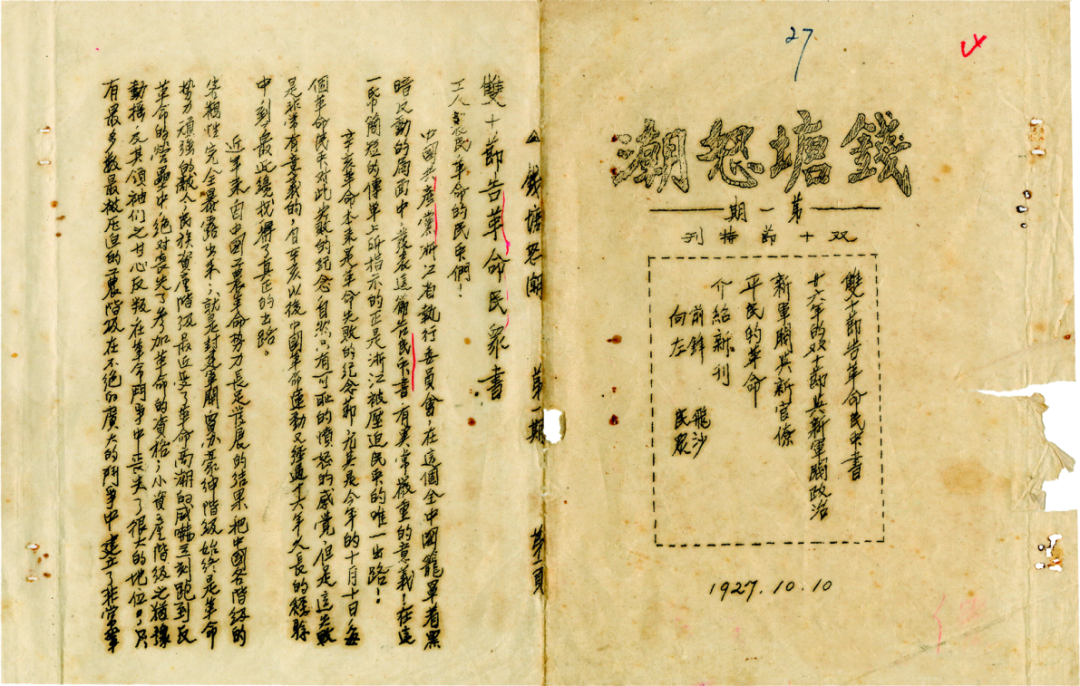 27
4
錢塘怒潮
第一期
双十節特刊
雙十節告革命民众書
廿六年的双十節與新軍閥政治
新軍閥與新官僚
平民的革命
介紹新刊
前鋒 飛沙
向左 民眾
1927.10.10
錢塘怒潮 第一期 第一頁
雙十節告革命民衆書
工人農民革命的民众們!
中國共產黨浙江省執行委員會,在這個全中國籠罩着黑
時反動的局面中,發表這篇告民众書有異常嚴重的意義!在這
一張簡短的傳單上所指示的正是浙江被壓迫民众的唯一出路!
辛亥革命本來是革命失敗的紀念節,尤其是今年的十月十日,每
個革命民众對此的紀念自然只有可耻的憤極的感覺,但是這失敗
是非常有意義的,自辛亥以後中國革命運動又經過十六年久長的
中,到最近纔找得了真正的出路。
近年來自中國工農革命勢力長足發展的結果,把中國各階級的
客觀性完全暴露出來,就是封建軍閥買办豪紳階級始終是革命
勢力頑強的敵人,民族資產階級最近受了革命高潮的威嚇立刻跑到反
革命的營壘中絕對喪失了參加革命的資格;小資產階級之猶豫
動搖,及其領袖們之甘心反叛在革命鬥爭中丧失了很大的地位。只
有最多數最被壓迫的工農階級在不絕的廣大的鬥爭中建立了非常鞏